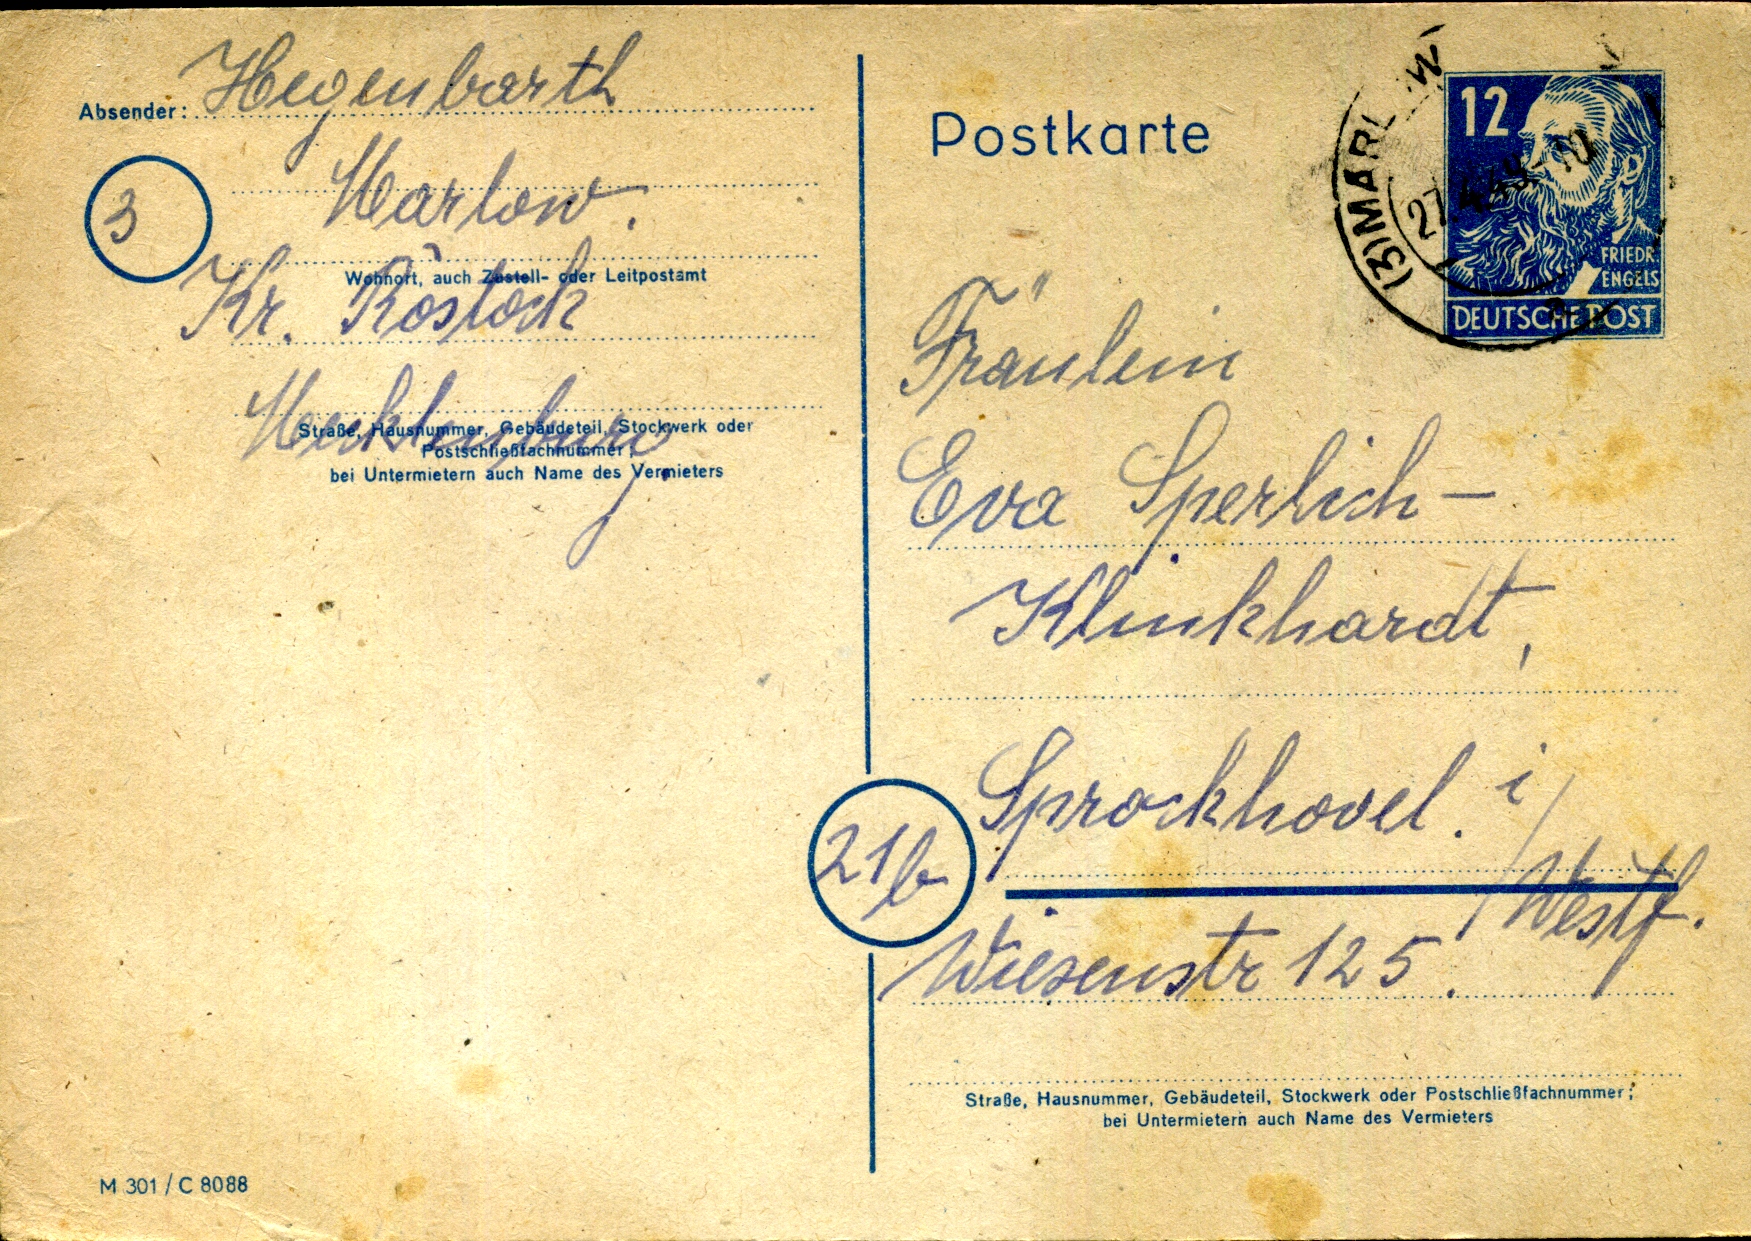 Absender: Hegenbarth
3
Marlow.
Wohnort, auch Zustell- oder Leitpostamt
Kr. Rostock
Mecklenburg
Straße, Hausnummer, Gebäudeteil, Stockwerk oder
Postschließfachnummer;
bei Untermietern auch Name des Vermieters
M 301 / C 8088
Postkarte
12
FRIEDR.
ENGELS
DEUTSCHE POST
(3) MARLOW
27.4.49.-10
Fräulein
Eva Sperlich-
Klinkhardt,
21b
Sprockhövel. i/Westf.
Wiesenstr 125.
Straße, Hausnummer, Gebäudeteil, Stockwerk oder Postschließfachnummer;
bei Untermietern auch Name des Vermieters